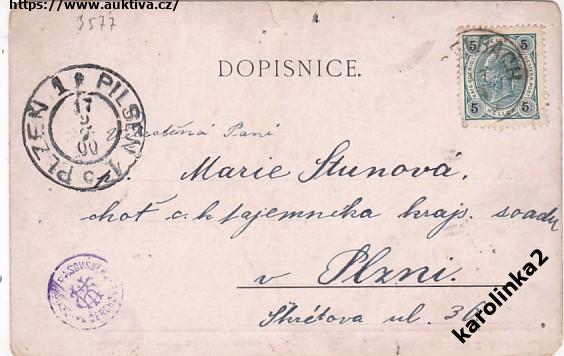 https://www.auktiva.cz/
3577
DOPISNICE.
5 5
5 5
PLZEN 1 PILSEN 1
17
00
Paní
Marie Stunová,
choť c. k. tajemníka krajs. soudu
v Plzni.
Škrétova ul. 36
karolinka2